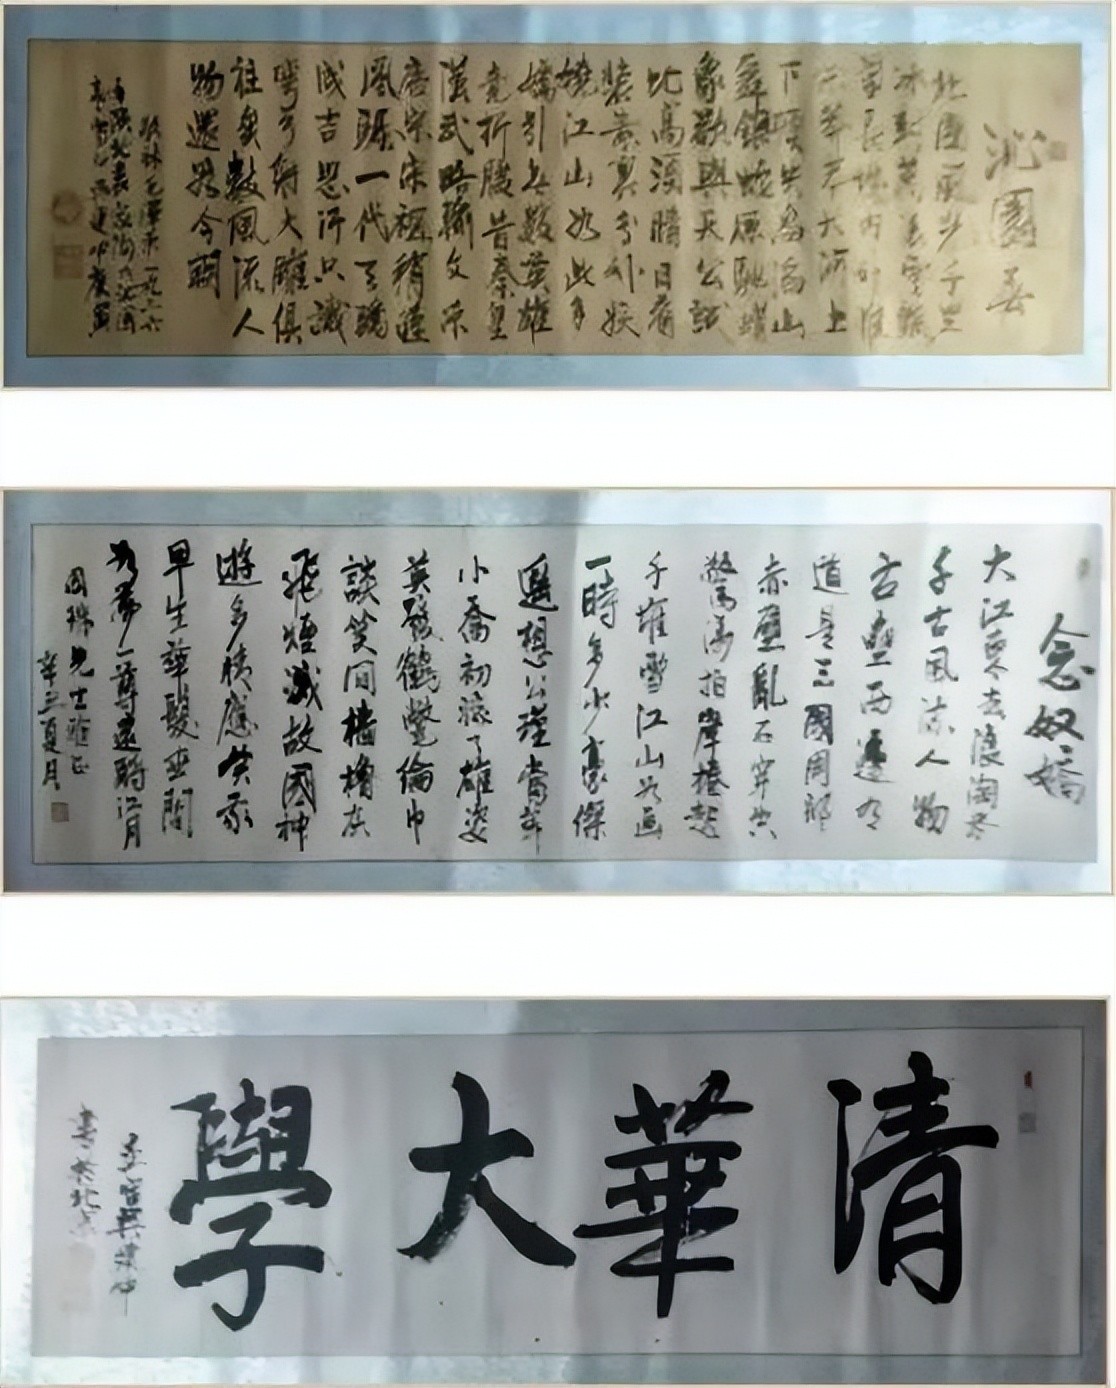 沁園春
北國風光千里
冰封萬里雪飄
望長城內外惟
餘莽莽大河上
下頓失滔滔山
舞銀蛇原馳蠟
象欲與天公試
比高須晴日看
裝素裹分外妖
嬈江山如此多
嬌引無數英雄
竟折腰昔秦皇
漢武略輸文采
唐宗宋祖稍遜
風騷一代天驕
成吉思汗只識
彎弓射大雕俱
往矣數風流人
物還看今朝
念奴嬌
大江東去浪淘尽
千古風流人物
古壘西邊人
道是三國周郎
赤壁亂石穿空
驚濤拍岸捲起
千堆雪江山如畫
一時多少豪傑
遙想公瑾當年
小喬初嫁了雄姿
英發鶴氅綸巾
談笑間檣櫓灰
飛煙滅故國神
遊多情應笑我
早生華髮人間
如夢一尊還酹江月
國瑞先生雅正
夏月
清華大學